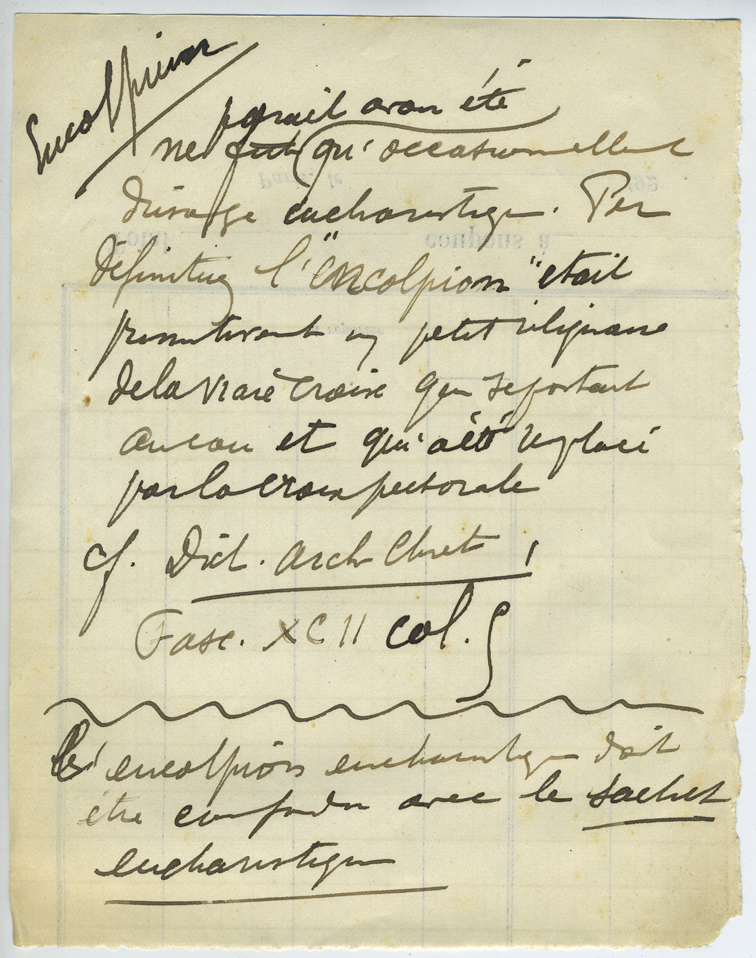 Encolpion
parait avoir été
ne fut qu'occasionnellement
d'usage eucharistique. Par
définition l'"encolpion" était
primitivement un petit reliquaire
de la vraie croix qui se portait
au cou et qui a été remplacé
par la croix pectorale
cf. Dict. Arch Chret,
Fasc. XCII col.
L'encolpion eucharistique doit
être confondu avec le sachet
eucharistique